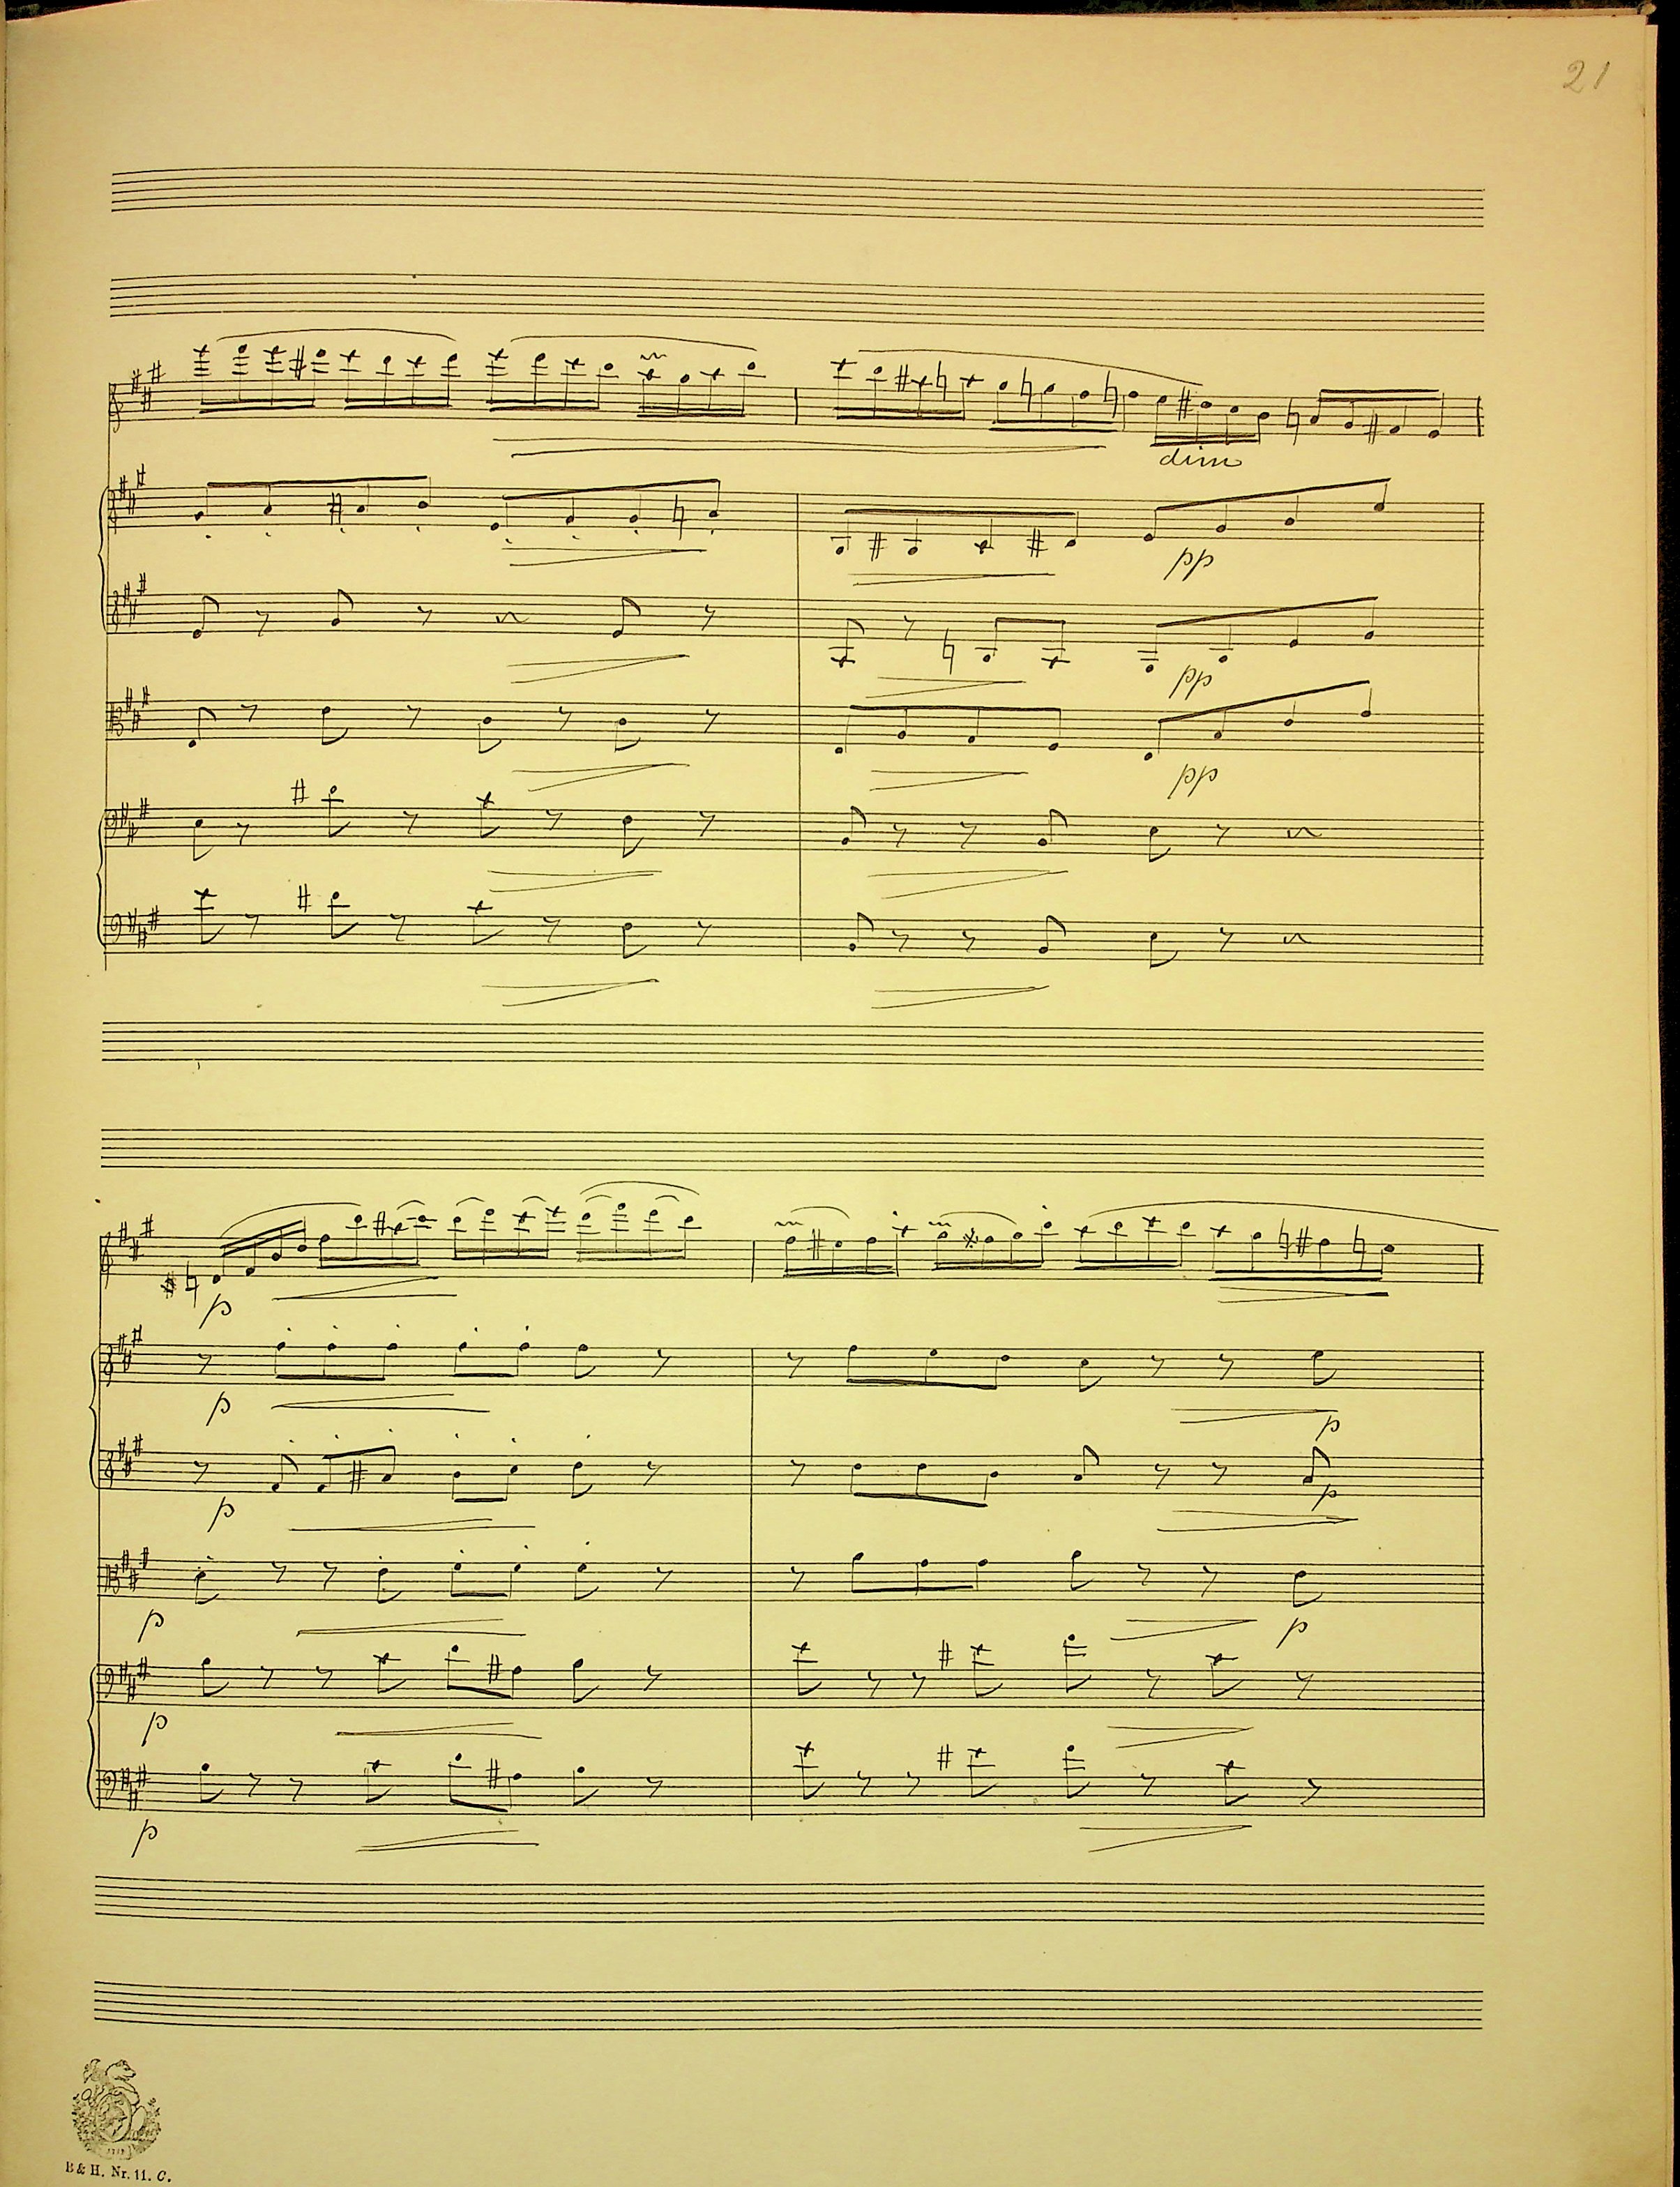 21
dim
pp
pp
pp
p
p
p
p
p
p
p
p
p
1719
B & H. Nr. 11. C.